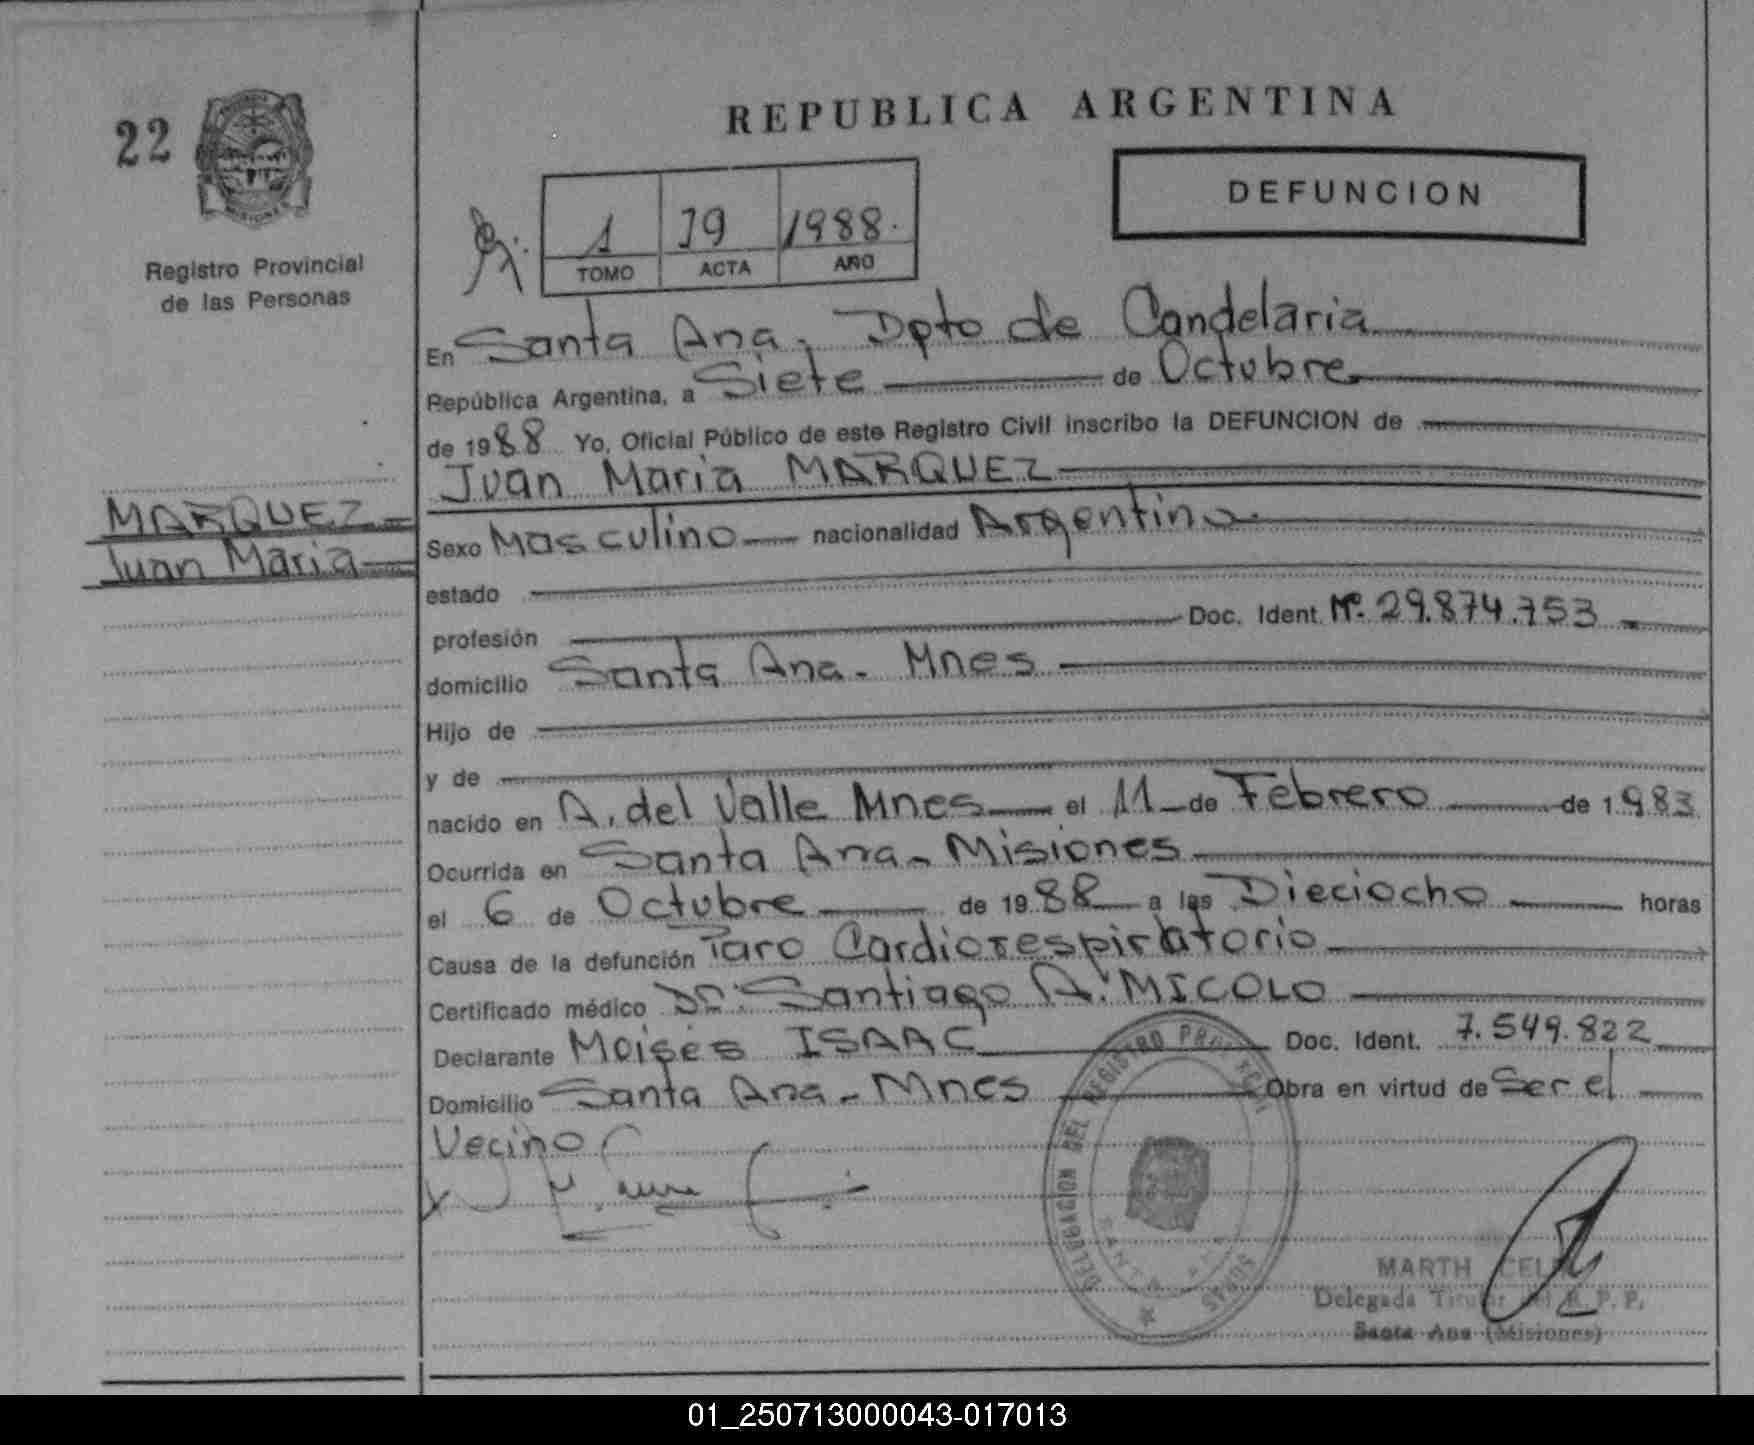 22
REPUBLICA ARGENTINA
DEFUNCION
1 19 1988.
TOMO ACTA AÑO
Registro Provincial
de las Personas
MISIONES
En Santa Ana, Dpto de Candelaria
República Argentina, a Siete de Octubre
de 1988 Yo, Oficial Público de este Registro Civil inscribo la DEFUNCION de
Juan Maria MARQUEZ
MARQUEZ
Juan Maria
Sexo Masculino nacionalidad Argentino
estado
profesión Doc. Ident. Nº. 29.874.753
domicilio Santa Ana - Mnes
Hijo de
y de
nacido en A. del Valle Mnes el 11 de Febrero de 1.983
Ocurrida en Santa Ana - Misiones
el 6 de Octubre de 1988 a las Dieciocho horas
Causa de la defunción Paro Cardiorespiratorio
Certificado médico Dr. Santiago A. MICOLO
Declarante Moises ISAAC Doc. Ident. 7.549.822
Domicilio Santa Ana - Mnes Obra en virtud de Ser el
Vecino
DELEGACION DEL REGISTRO
SANTA ANA
MARTH
Delegada Titular del R. P. P.
Santa Ana (Misiones)
01_250713000043-017013